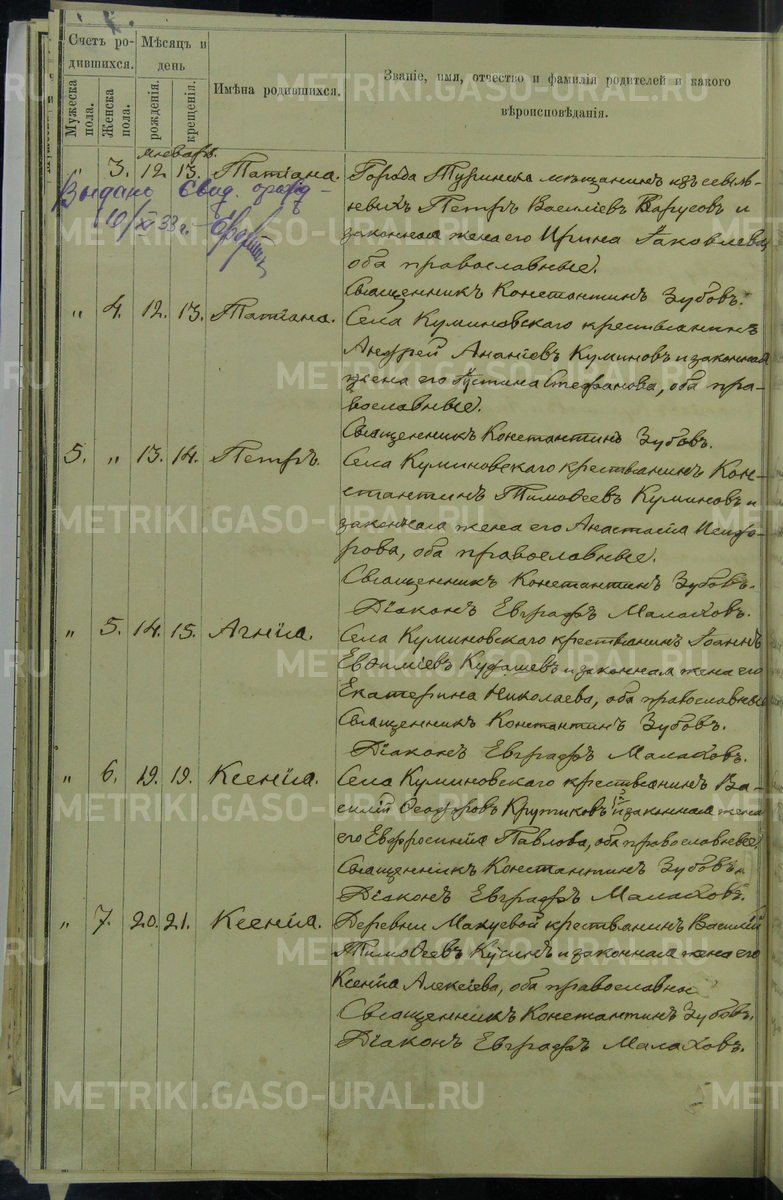 Счетъ ро-
дившихся.
Мѣсяцъ и
день
Мужеска
пола.
Женска
пола.
рожденія.
крещенія.
Имѣна родившихся.
Званіе, имя, отчество и фамилія родителей и какого
вѣроисповѣданія.
Январь.
" 3. 12. 13. Татіана. Города Туринска мѣщанинъ изъ ссыль-
Выдано свид.
ныхъ Петръ Василіевъ и
10/XI 33 г.
законная жена его Ирина Іаковлева,
оба православные.
Священникъ Константинъ Зубовъ.
" 4. 12. 13. Татіана. Села Куминовскаго крестьянинъ
Андрей Ананіевъ Куминовъ и законная
жена его Іустина Стефанова, оба пра-
вославные.
Священникъ Константинъ Зубовъ.
5. " 13. 14. Петръ. Села Куминовскаго крестьянинъ Кон-
стантинъ Тимоѳеевъ Куминовъ и
законная жена его Анастасія Исидо-
рова, оба православные.
Священникъ Константинъ Зубовъ.
Діаконъ Евграфъ Малаховъ.
" 5. 14. 15. Агнія. Села Куминовскаго крестьянинъ Іоаннъ
Евѳиміевъ Кудашевъ и законная жена его
Екатерина Николаева, оба православные
Священникъ Константинъ Зубовъ.
Діаконъ Евграфъ Малаховъ.
" 6. 19. 19. Ксенія. Села Куминовскаго крестьянинъ Ва-
силій Ѳеодоровъ Крутиковъ и законная жена
его Евфросинія Павлова, оба православные.
Священникъ Константинъ Зубовъ.
Діаконъ Евграфъ Малаховъ.
" 7. 20. 21. Ксенія. Деревни Макуевой крестьянинъ Василій
Тимоѳеевъ Кузинъ и законная жена его
Ксенія Алексіева, оба православны
Священникъ Константинъ Зубовъ.
Діаконъ Евграфъ Малаховъ.
METRIKI.GASO-URAL.RU